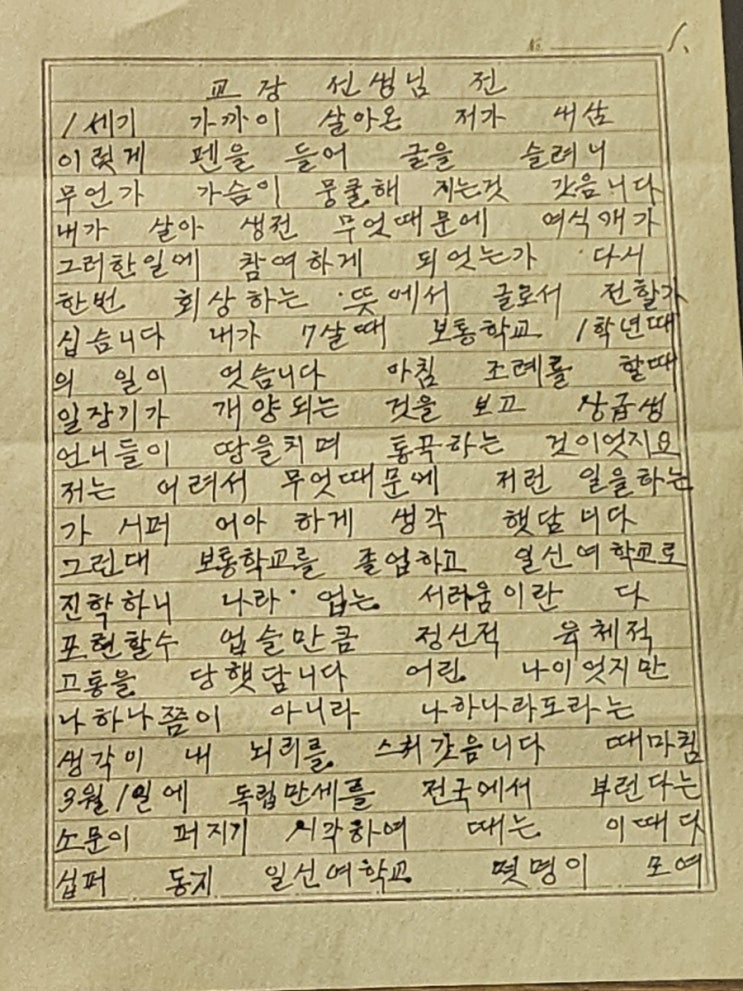 № 1.
교장 선생님 전
1세기 가까이 살아온 저가 새삼
이렇게 펜을 들어 글을 슬려니
무언가 가슴이 뭉쿨해 지는것 갓음니다
내가 살아 생전 무엇때문에 여식애가
그러한일에 참여하게 되엇는가 다시
한번 회상하는 뜻에서 글로서 전할가
십습니다 내가 7살때 보통학교 1학년때
의 일이 엇습니다 아침 조례를 할때
일장기가 개양되는 것을 보고 상급생
언니들이 땅을치며 통곡하는 것이엇지요
저는 어려서 무엇때문에 저런 일을하는
가 시퍼 어아 하게 생각 햇담니다
그런대 보통학교를 졸업하고 일신여학교로
진학하니 나라 업는 서러움이란 다
포현할수 업슬만큼 정신적 육체적
고통을 당햇담니다 어린 나이엇지만
나하나쯤이 아니라 나하나라도라는
생각이 내 뇌리를 스쳐갓음니다 때마침
3월1일에 독립만세를 전국에서 부런다는
소문이 퍼지기 시작하여 때는 이때다
십퍼 동지 일신여학교 몃명이 모여